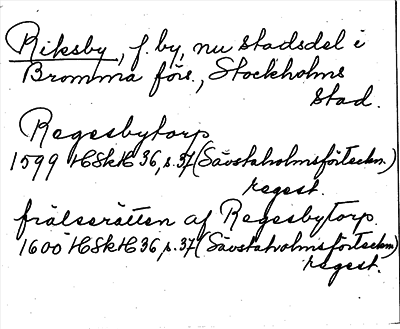 Riksby, f. by, nu stadsdel i
Bromma förs., Stockholms
stad.
Regesbytorp
1599 HSkH 36, s. 37 (Sävstaholmsförteckn.)
regest.
frälserätten af Regesbytorp
1600 HSkH 36, s. 37 (Sävstaholmsförteckn.)
regest.